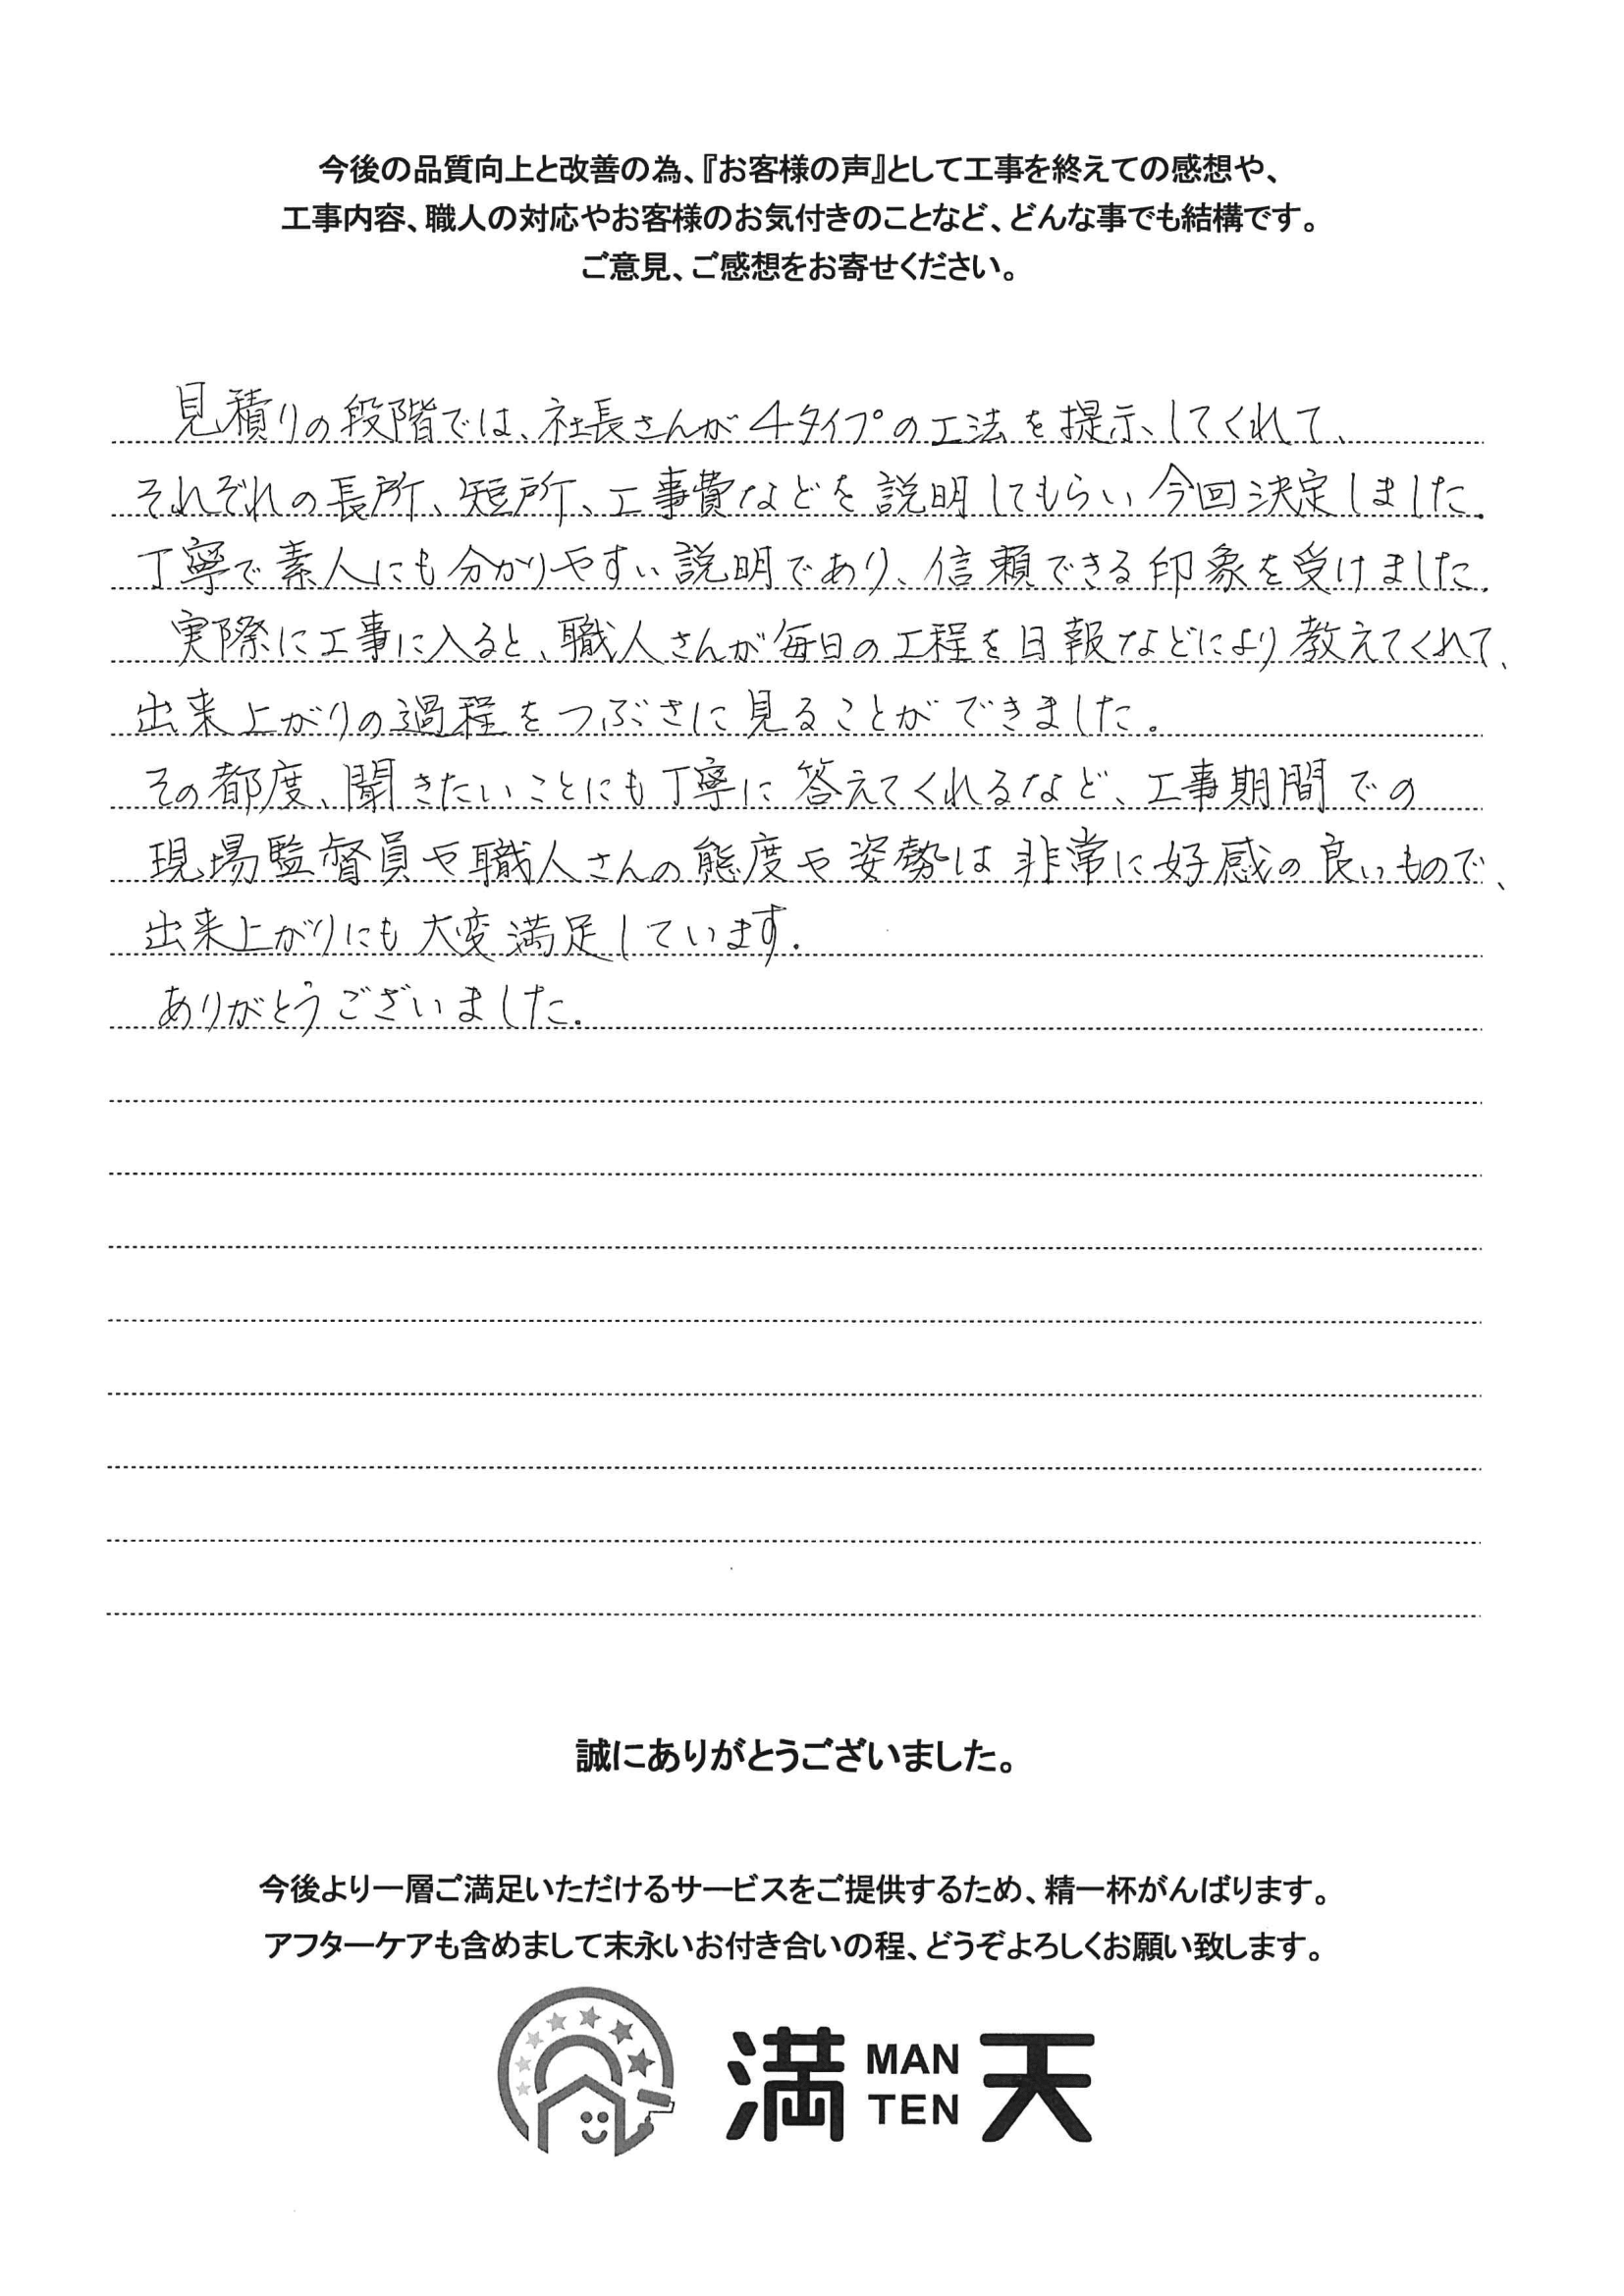 今後の品質向上と改善の為、『お客様の声』として工事を終えての感想や、
工事内容、職人の対応やお客様のお気付きのことなど、どんな事でも結構です。
ご意見、ご感想をお寄せください。
見積りの段階では、社長さんが4タイプの工法を提示してくれて、
それぞれの長所、短所、工事費などを説明してもらい今回決定しました.
丁寧で素人にも分かりやすい説明であり、信頼できる印象を受けました.
実際に工事に入ると、職人さんが毎日の工程を日報などにより教えてくれて、
出来上がりの過程をつぶさに見ることができました。
その都度、聞きたいことにも丁寧に答えてくれるなど、工事期間での
現場監督員や職人さんの態度や姿勢は非常に好感の良いもので、
出来上がりにも大変満足しています.
ありがとうございました.
誠にありがとうございました。
今後より一層ご満足いただけるサービスをご提供するため、精一杯がんばります。
アフターケアも含めまして末永いお付き合いの程、どうぞよろしくお願い致します。
満 MAN TEN 天